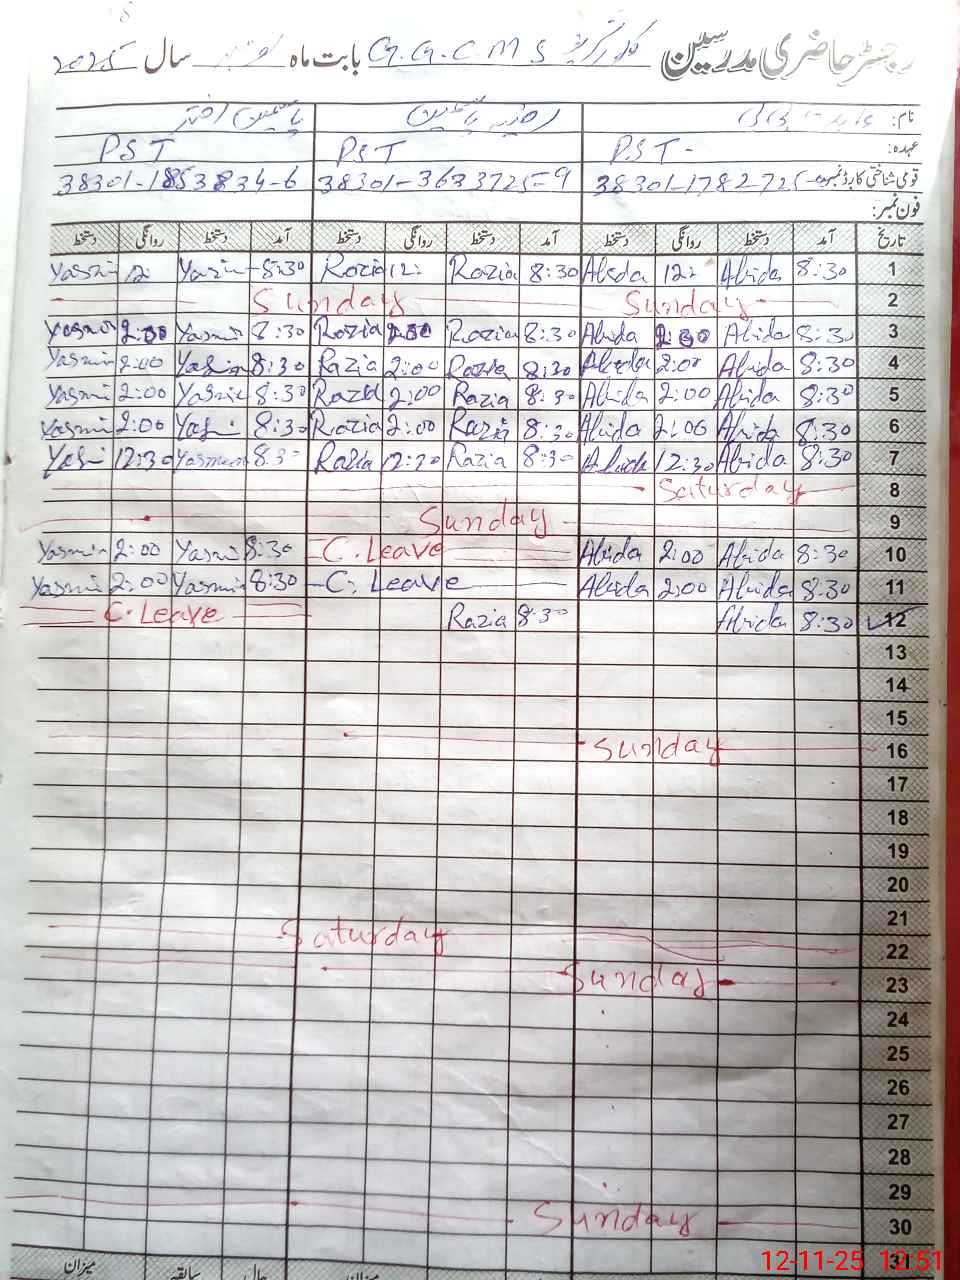 رجسٹر حاضری مدرسین G.G.C.M.S بابت ماہ سال 2025
نام: یاسمین اختر
عہدہ: PST PST PST
قومی شناختی کارڈ نمبر 38301-3633725-9 38301-1853834-6
فون نمبر:
تاریخ آمد دستخط روانگی دستخط آمد دستخط روانگی دستخط آمد دستخط روانگی دستخط
1 8:30 Abida 12: Abida 8:30 Razia 12: Razia 8:30 Yasmin 12: Yasmin
2 Sunday Sunday
3 8:30 Abida 2:00 Abida 8:30 Razia 2:00 Razia 8:30 Yasmin 2:00 Yasmin
4 8:30 Abida 2:00 Abida 8:30 Razia 2:00 Razia 8:30 Yasmin 2:00 Yasmin
5 8:30 Abida 2:00 Abida 8:30 Razia 2:00 Razia 8:30 Yasmin 2:00 Yasmin
6 8:30 Abida 2:00 Abida 8:30 Razia 2:00 Razia 8:30 2:00 Yasmin
7 8:30 Abida 12:30 Abida 8:30 Razia 12:30 Razia 8:30 Yasmeen 12:30
8 Saturday
9 Sunday
10 8:30 Abida 2:00 Abida C. Leave 8:30 Yasmin 2:00 Yasmin
11 8:30 Abida 2:00 Abida C. Leave 8:30 Yasmin 2:00 Yasmin
12 8:30 Abida 8:30 Razia C. Leave
13
14
15
16 Sunday
17
18
19
20
21
22 Saturday
23 Sunday
24
25
26
27
28
29
30 Sunday
31
میزان سابقہ حال میزان
12-11-25 12:51